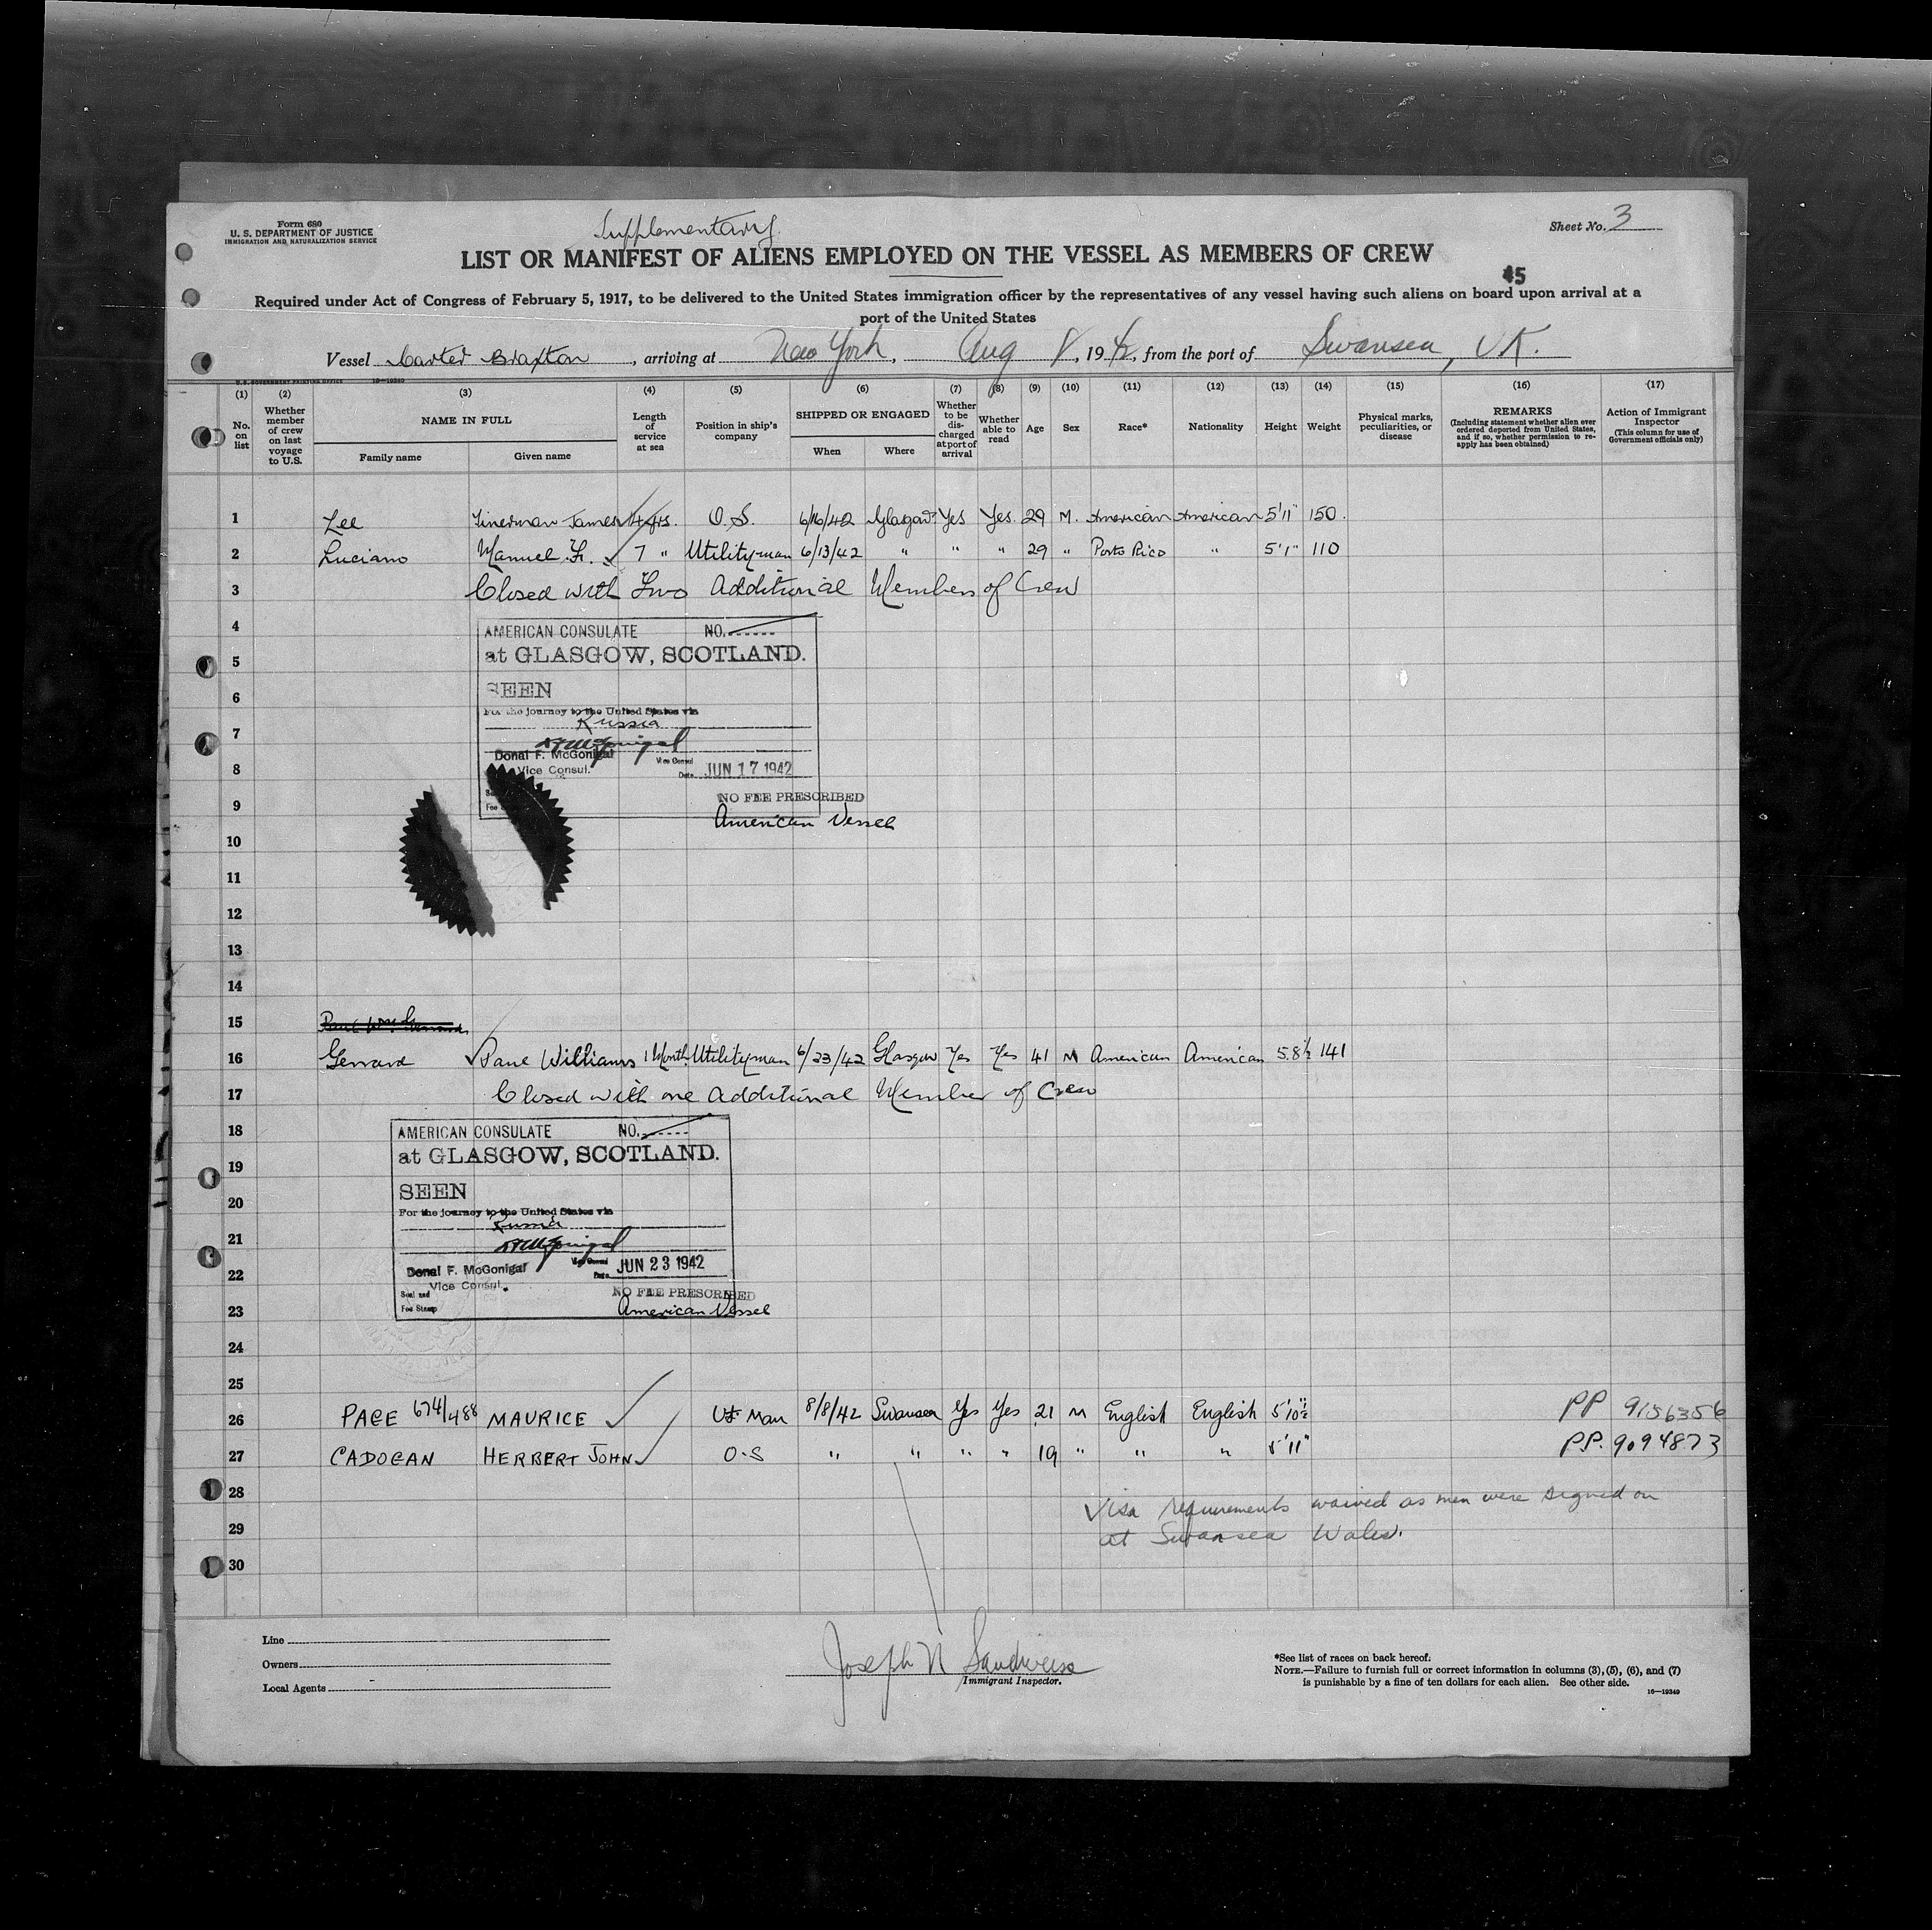 Form 680
U. S. DEPARTMENT OF JUSTICE
IMMIGRATION AND NATURALIZATION SERVICE
Supplementary
Sheet No. 3
LIST OR MANIFEST OF ALIENS EMPLOYED ON THE VESSEL AS MEMBERS OF CREW
45
Required under Act of Congress of February 5, 1917, to be delivered to the United States immigration officer by the representatives of any vessel having such aliens on board upon arrival at a
port of the United States
Vessel Carter Braxton, arriving at New York, Aug 8, 1942, from the port of Swansea, UK.
U.S. GOVERNMENT PRINTING OFFICE 16—19349
(1) (2) (3) (4) (5) (6) (7) (8) (9) (10) (11) (12) (13) (14) (15) (16) (17)
No. on list
Whether member of crew on last voyage to U.S.
NAME IN FULL
Family name
Given name
Length of service at sea
Position in ship's company
SHIPPED OR ENGAGED
When
Where
Whether to be discharged at port of arrival
Whether able to read
Age
Sex
Race*
Nationality
Height
Weight
Physical marks, peculiarities, or disease
REMARKS
(Including statement whether alien ever ordered deported from United States, and if so, whether permission to reapply has been obtained)
Action of Immigrant Inspector
(This column for use of Government officials only)
1 Lee James 4 yrs. O.S. 6/16/42 Glasgow Yes Yes. 29 M. American American 5'11" 150.
2 Luciano Manuel Fr. 7 " Utilityman 6/13/42 " " " 29 " Porto Rico " 5'1" 110
3 Closed with Two Additional Members of Crew
4
AMERICAN CONSULATE NO.
at GLASGOW, SCOTLAND.
5
SEEN
6
For the journey to the United States via
Russia
7
Donal F. McGonigal
Vice Consul.
Vice Consul
Date JUN 17 1942
8
NO FEE PRESCRIBED
9
American Vessel
10
11
12
13
14
15
16 Gerrard Paul Williams 1 Month Utilityman 6/23/42 Glasgow Yes Yes 41 M American American 5.8½ 141
17 Closed with one Additional Member of Crew
18
AMERICAN CONSULATE NO.
at GLASGOW, SCOTLAND.
19
SEEN
20
For the journey to the United States via
Russia
21
Donal F. McGonigal
Vice Consul.
Vice Consul
Date JUN 23 1942
22
Seal and
Fee Stamp
NO FEE PRESCRIBED
23
American Vessel
24
25
26 PAGE 674/488 MAURICE Ut Man 8/8/42 Swansea Yes Yes 21 M English English 5'10½" PP 9156356
27 CADOGAN HERBERT JOHN O.S " " " " 19 " " " 5'11" P.P. 9094873
28 Visa requirements waived as men were signed on
29 at Swansea Wales.
30
Line
Owners
Local Agents
Joseph N Sandweiss
Immigrant Inspector.
*See list of races on back hereof.
NOTE.—Failure to furnish full or correct information in columns (3), (5), (6), and (7)
is punishable by a fine of ten dollars for each alien. See other side.
16—19349